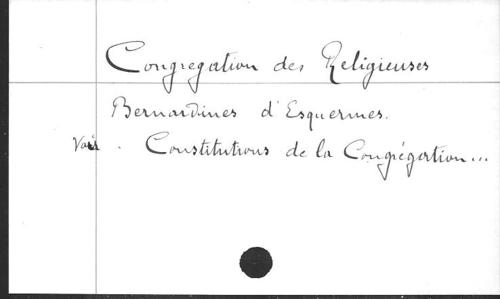 Congregation des Religieuses
Bernardines d'Esquermes.
Voir. Constitutions de la Congrégation...